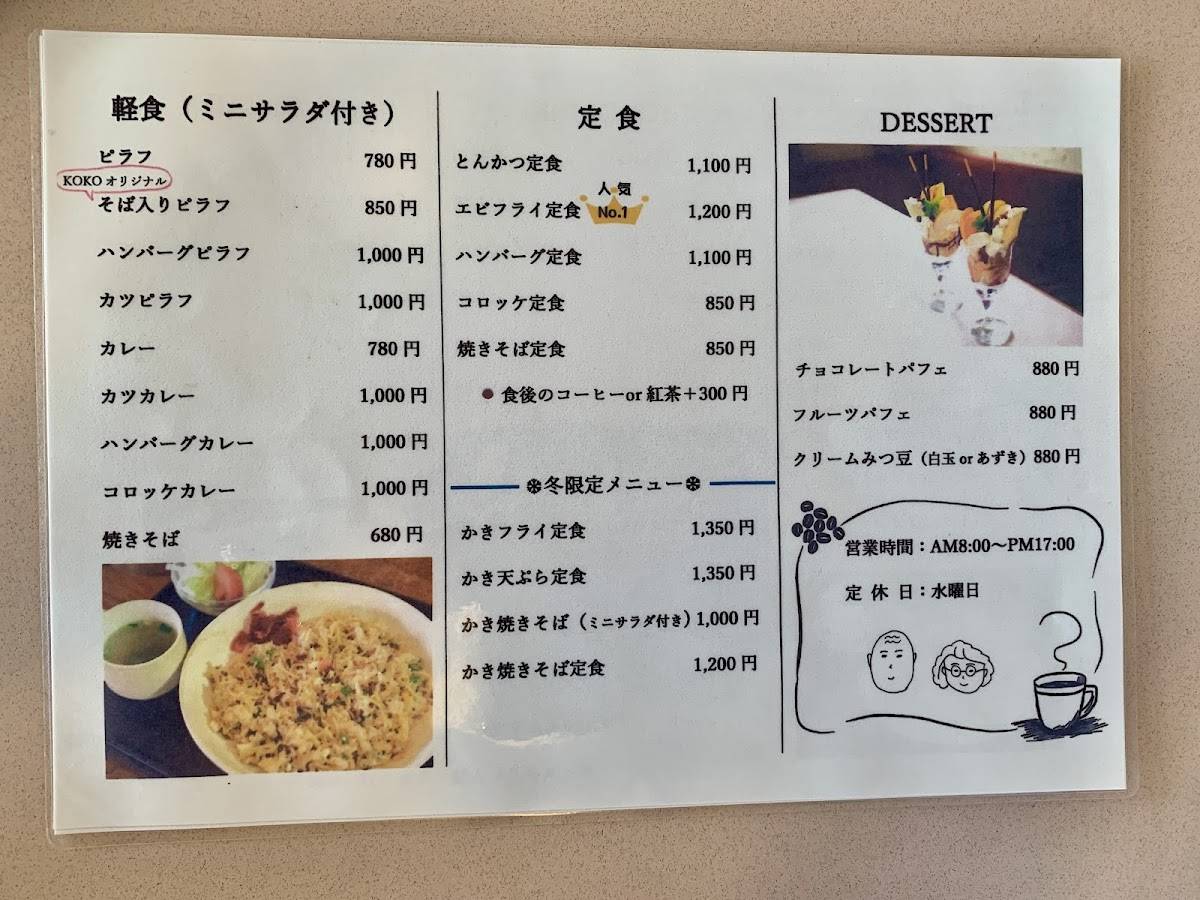 軽食（ミニサラダ付き）
ピラフ 780円
KOKOオリジナル
そば入りピラフ 850円
ハンバーグピラフ 1,000円
カツピラフ 1,000円
カレー 780円
カツカレー 1,000円
ハンバーグカレー 1,000円
コロッケカレー 1,000円
焼きそば 680円
定食
とんかつ定食 1,100円
人気
エビフライ定食 No.1 1,200円
ハンバーグ定食 1,100円
コロッケ定食 850円
焼きそば定食 850円
●食後のコーヒーor紅茶＋300円
❆冬限定メニュー❆
かきフライ定食 1,350円
かき天ぷら定食 1,350円
かき焼きそば（ミニサラダ付き）1,000円
かき焼きそば定食 1,200円
DESSERT
チョコレートパフェ 880円
フルーツパフェ 880円
クリームみつ豆（白玉orあずき）880円
営業時間：AM8:00～PM17:00
定休日：水曜日